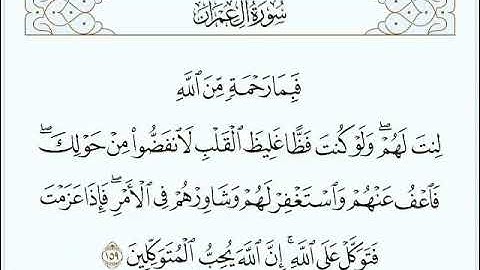 سُورَةُ آلِ عِمْرَان
فَبِمَا رَحْمَةٖ مِّنَ ٱللَّهِ
لِنتَ لَهُمۡۖ وَلَوۡ كُنتَ فَظًّا غَلِيظَ ٱلۡقَلۡبِ لَٱنفَضُّواْ مِنۡ حَوۡلِكَۖ
فَٱعۡفُ عَنۡهُمۡ وَٱسۡتَغۡفِرۡ لَهُمۡ وَشَاوِرۡهُمۡ فِي ٱلۡأَمۡرِۖ فَإِذَا عَزَمۡتَ
فَتَوَكَّلۡ عَلَى ٱللَّهِۚ إِنَّ ٱللَّهَ يُحِبُّ ٱلۡمُتَوَكِّلِينَ ١٥٩